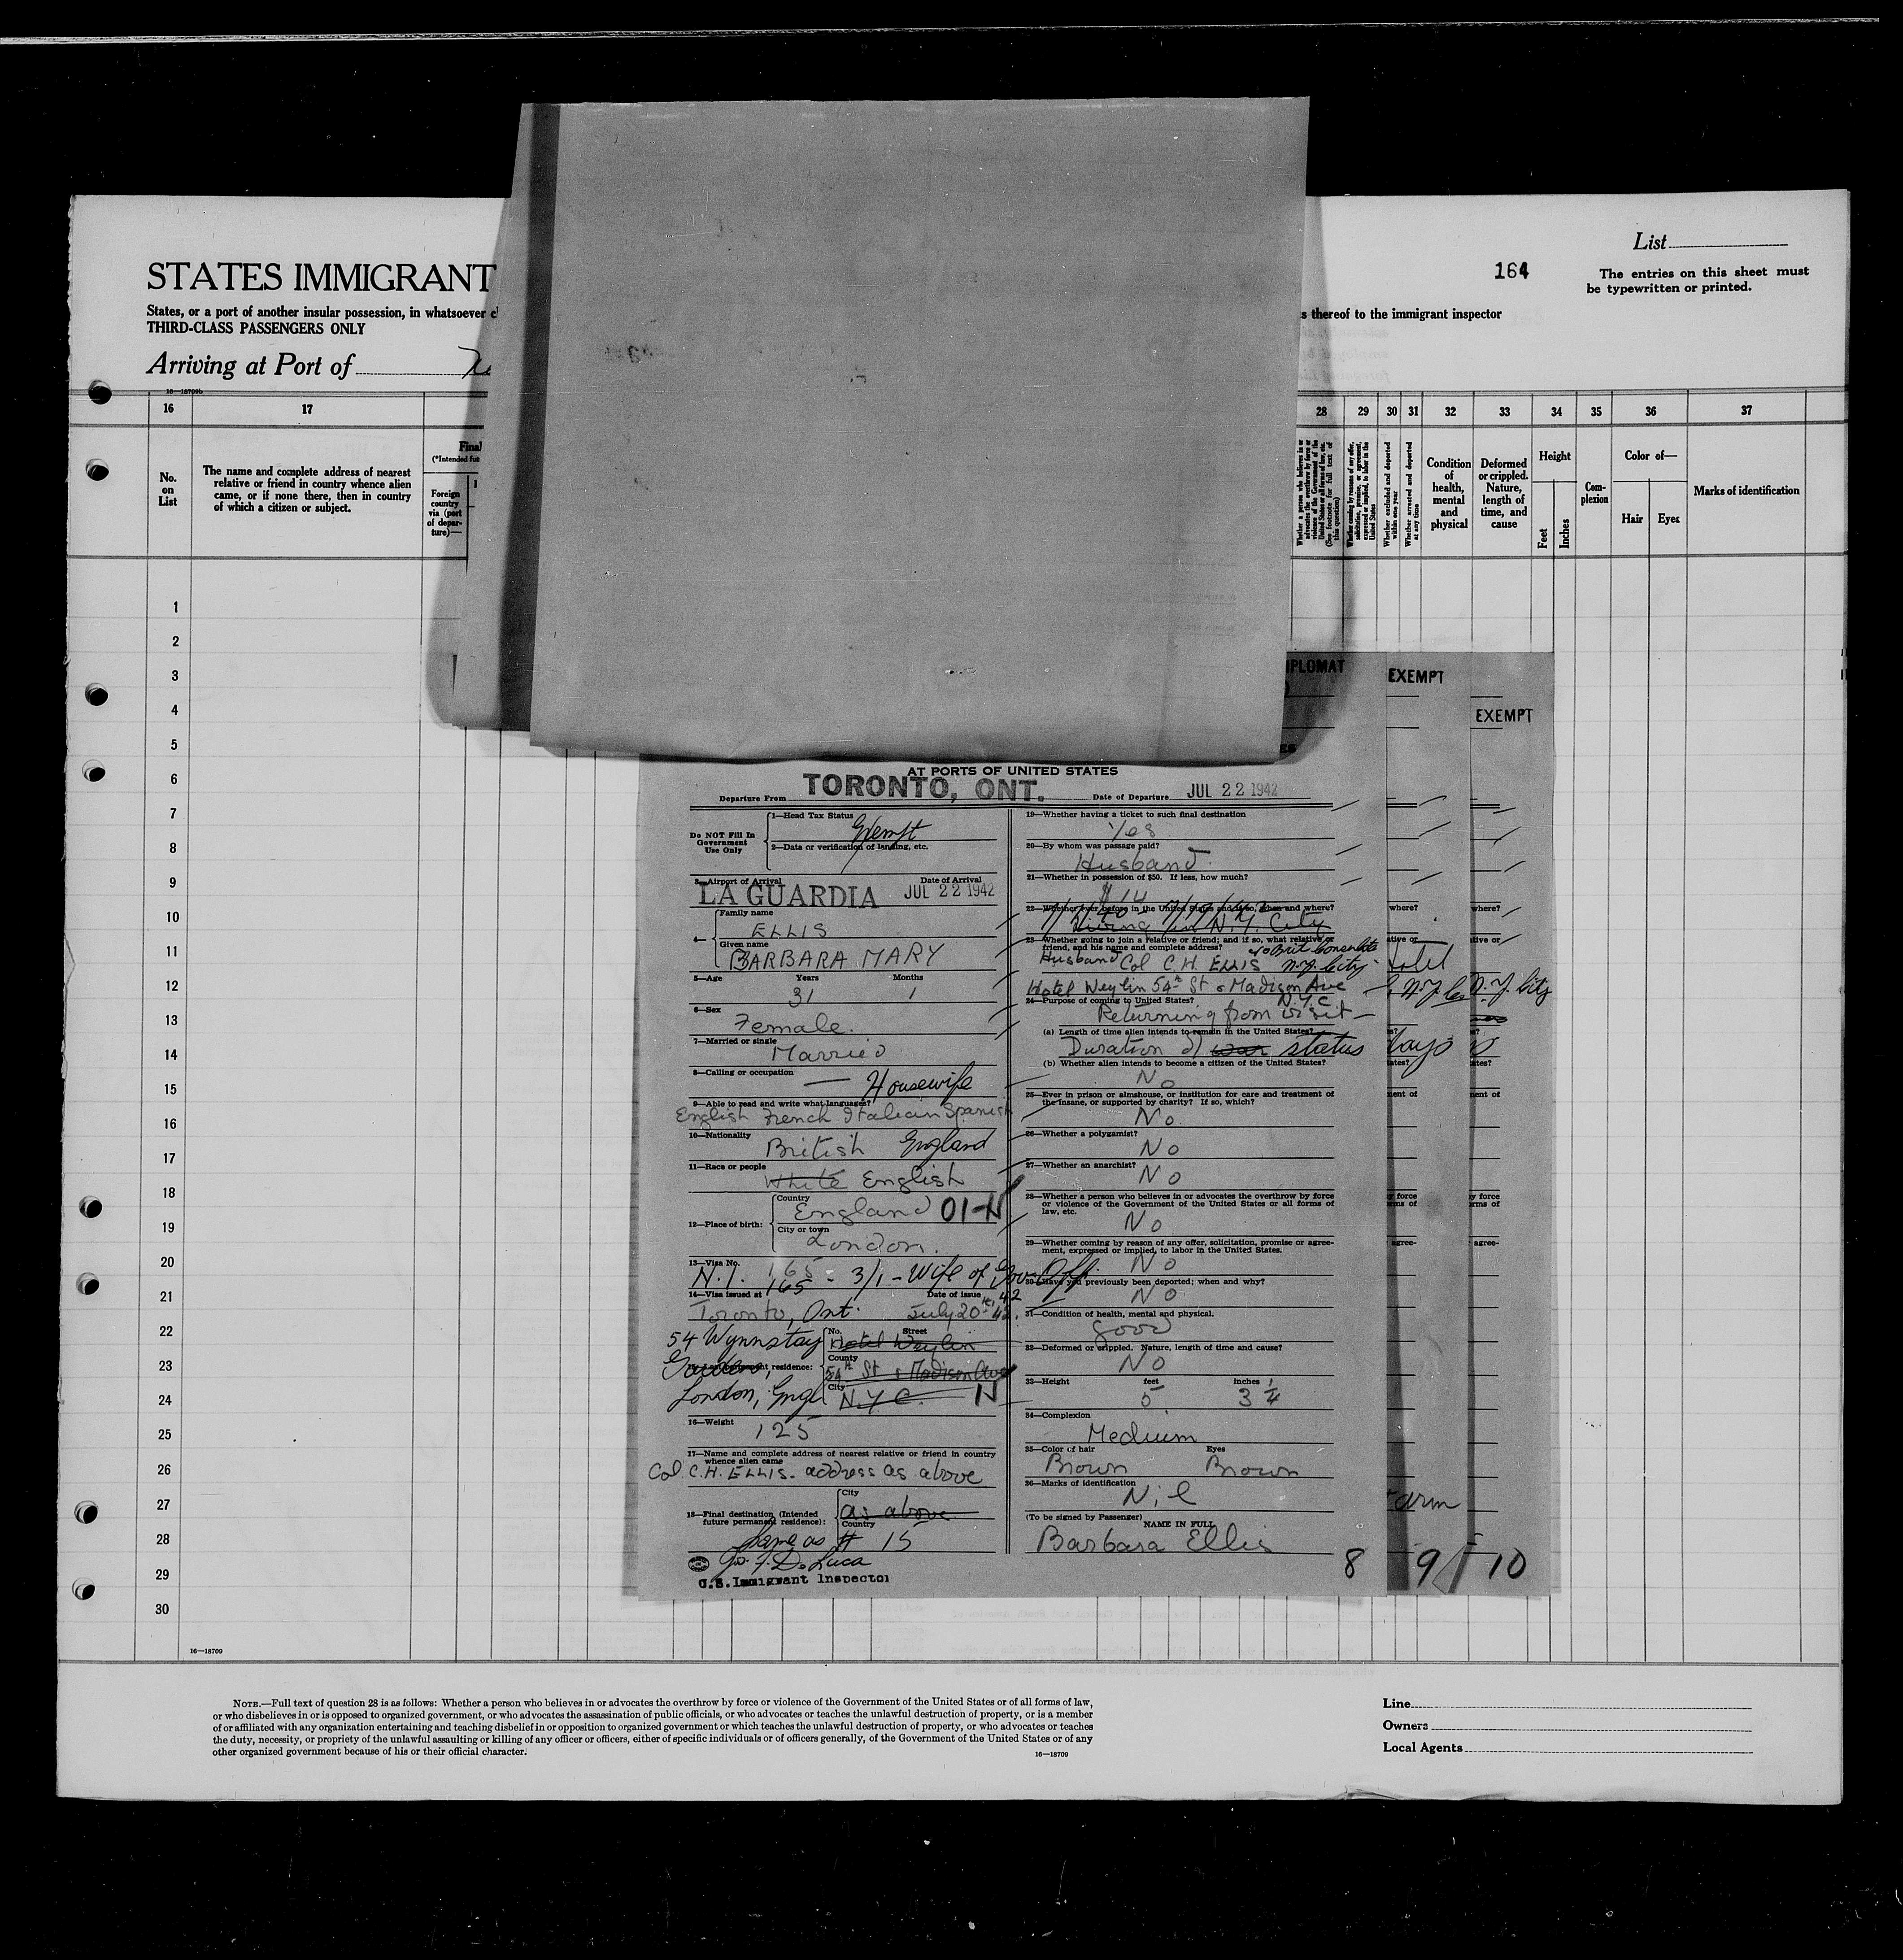 List
164
The entries on this sheet must
be typewritten or printed.
STATES IMMIGRANT
States, or a port of another insular possession, in whatsoever
s thereof to the immigrant inspector
THIRD-CLASS PASSENGERS ONLY
Arriving at Port of
16—18709b
16 17 28 29 30 31 32 33 34 35 36 37
No.
on
List
The name and complete address of nearest
relative or friend in country whence alien
came, or if none there, then in country
of which a citizen or subject.
Final
(*Intended fu
Foreign
country
via (port
of depar-
ture)—
Whether a person who believes in or
advocates the overthrow by force or
violence of the Government of the
United States or all forms of law, etc.
(See footnote for full text of
this question)
Whether coming by reasons of any offer,
solicitation, promise, or agreement,
expressed or implied, to labor in the
United States
Whether excluded and deported
within one year
Whether arrested and deported
at any time
Condition
of
health,
mental
and
physical
Deformed
or crippled.
Nature,
length of
time, and
cause
Height
Feet
Inches
Com-
plexion
Color of—
Hair
Eyes
Marks of identification
1
2
3
4
5
6
7
8
9
10
11
12
13
14
15
16
17
18
19
20
21
22
23
24
25
26
27
28
29
30
16—18709
IPLOMAT
EXEMPT
EXEMPT
AT PORTS OF UNITED STATES
Departure From TORONTO, ONT. Date of Departure JUL 22 1942
Do NOT Fill In
Government
Use Only
1—Head Tax Status
Exempt
2—Data or verification of landing, etc.
3—Airport of Arrival Date of Arrival
LA GUARDIA JUL 22 1942
4—
Family name
ELLIS
Given name
BARBARA MARY
5—Age Years Months
31 1
6—Sex
Female.
7—Married or single
Married
8—Calling or occupation
— Housewife
9—Able to read and write what languages?
English French Italian Spanish
10—Nationality
British England
11—Race or people
White English
12—Place of birth:
Country
England 01-N
City or town
London.
13—Visa No.
N.I. 165 - 3/1 - Wife of Gov. Off.
165
14—Visa issued at Date of issue
Toronto, Ont. July 20th 42.
54 Wynnstay
Gardens,
London, Engl
15—Last permanent residence:
No. Street
Hotel Weylin
County
54th St & Madison Ave
City
N.Y.C. N
16—Weight
125
17—Name and complete address of nearest relative or friend in country
whence alien came
Col. C.H. ELLIS - address as above
18—Final destination (Intended
future permanent residence):
City
as above
Country
Same as # 15
Luca
U.S. Immigrant Inspector
19—Whether having a ticket to such final destination
Yes
20—By whom was passage paid?
Husband.
21—Whether in possession of $50. If less, how much?
$14
22—Whether ever before in the United States and if so, when and where?
Living in N.Y. City
23—Whether going to join a relative or friend; and if so, what relative or
friend, and his name and complete address?
c/o Brit. Consulate
Husband Col C.H. ELLIS N.Y. City
Hotel Weylin 54th St & Madison Ave
N.Y.C.
24—Purpose of coming to United States?
Returning from visit —
(a) Length of time alien intends to remain in the United States?
Duration of war status
(b) Whether alien intends to become a citizen of the United States?
No
25—Ever in prison or almshouse, or institution for care and treatment of
the insane, or supported by charity? If so, which?
No.
26—Whether a polygamist?
No
27—Whether an anarchist?
No
28—Whether a person who believes in or advocates the overthrow by force
or violence of the Government of the United States or all forms of
law, etc.
No
29—Whether coming by reason of any offer, solicitation, promise or agree-
ment, expressed or implied, to labor in the United States.
No
30—Have you previously been deported; when and why?
No
31—Condition of health, mental and physical.
Good
32—Deformed or crippled. Nature, length of time and cause?
No
33—Height feet inches
5 3 1/4
34—Complexion
Medium
35—Color of hair Eyes
Brown Brown
36—Marks of identification
Nil
(To be signed by Passenger)
NAME IN FULL
Barbara Ellis
8
where?
tive or
Hotel
days
ment of
y force
rms of
agree-
arm
9
where?
tive or
N.Y. City
ment of
y force
rms of
agree-
10
NOTE.—Full text of question 28 is as follows: Whether a person who believes in or advocates the overthrow by force or violence of the Government of the United States or of all forms of law,
or who disbelieves in or is opposed to organized government, or who advocates the assassination of public officials, or who advocates or teaches the unlawful destruction of property, or is a member
of or affiliated with any organization entertaining and teaching disbelief in or opposition to organized government or which teaches the unlawful destruction of property, or who advocates or teaches
the duty, necessity, or propriety of the unlawful assaulting or killing of any officer or officers, either of specific individuals or of officers generally, of the Government of the United States or of any
other organized government because of his or their official character.
16—18709
Line
Owners
Local Agents